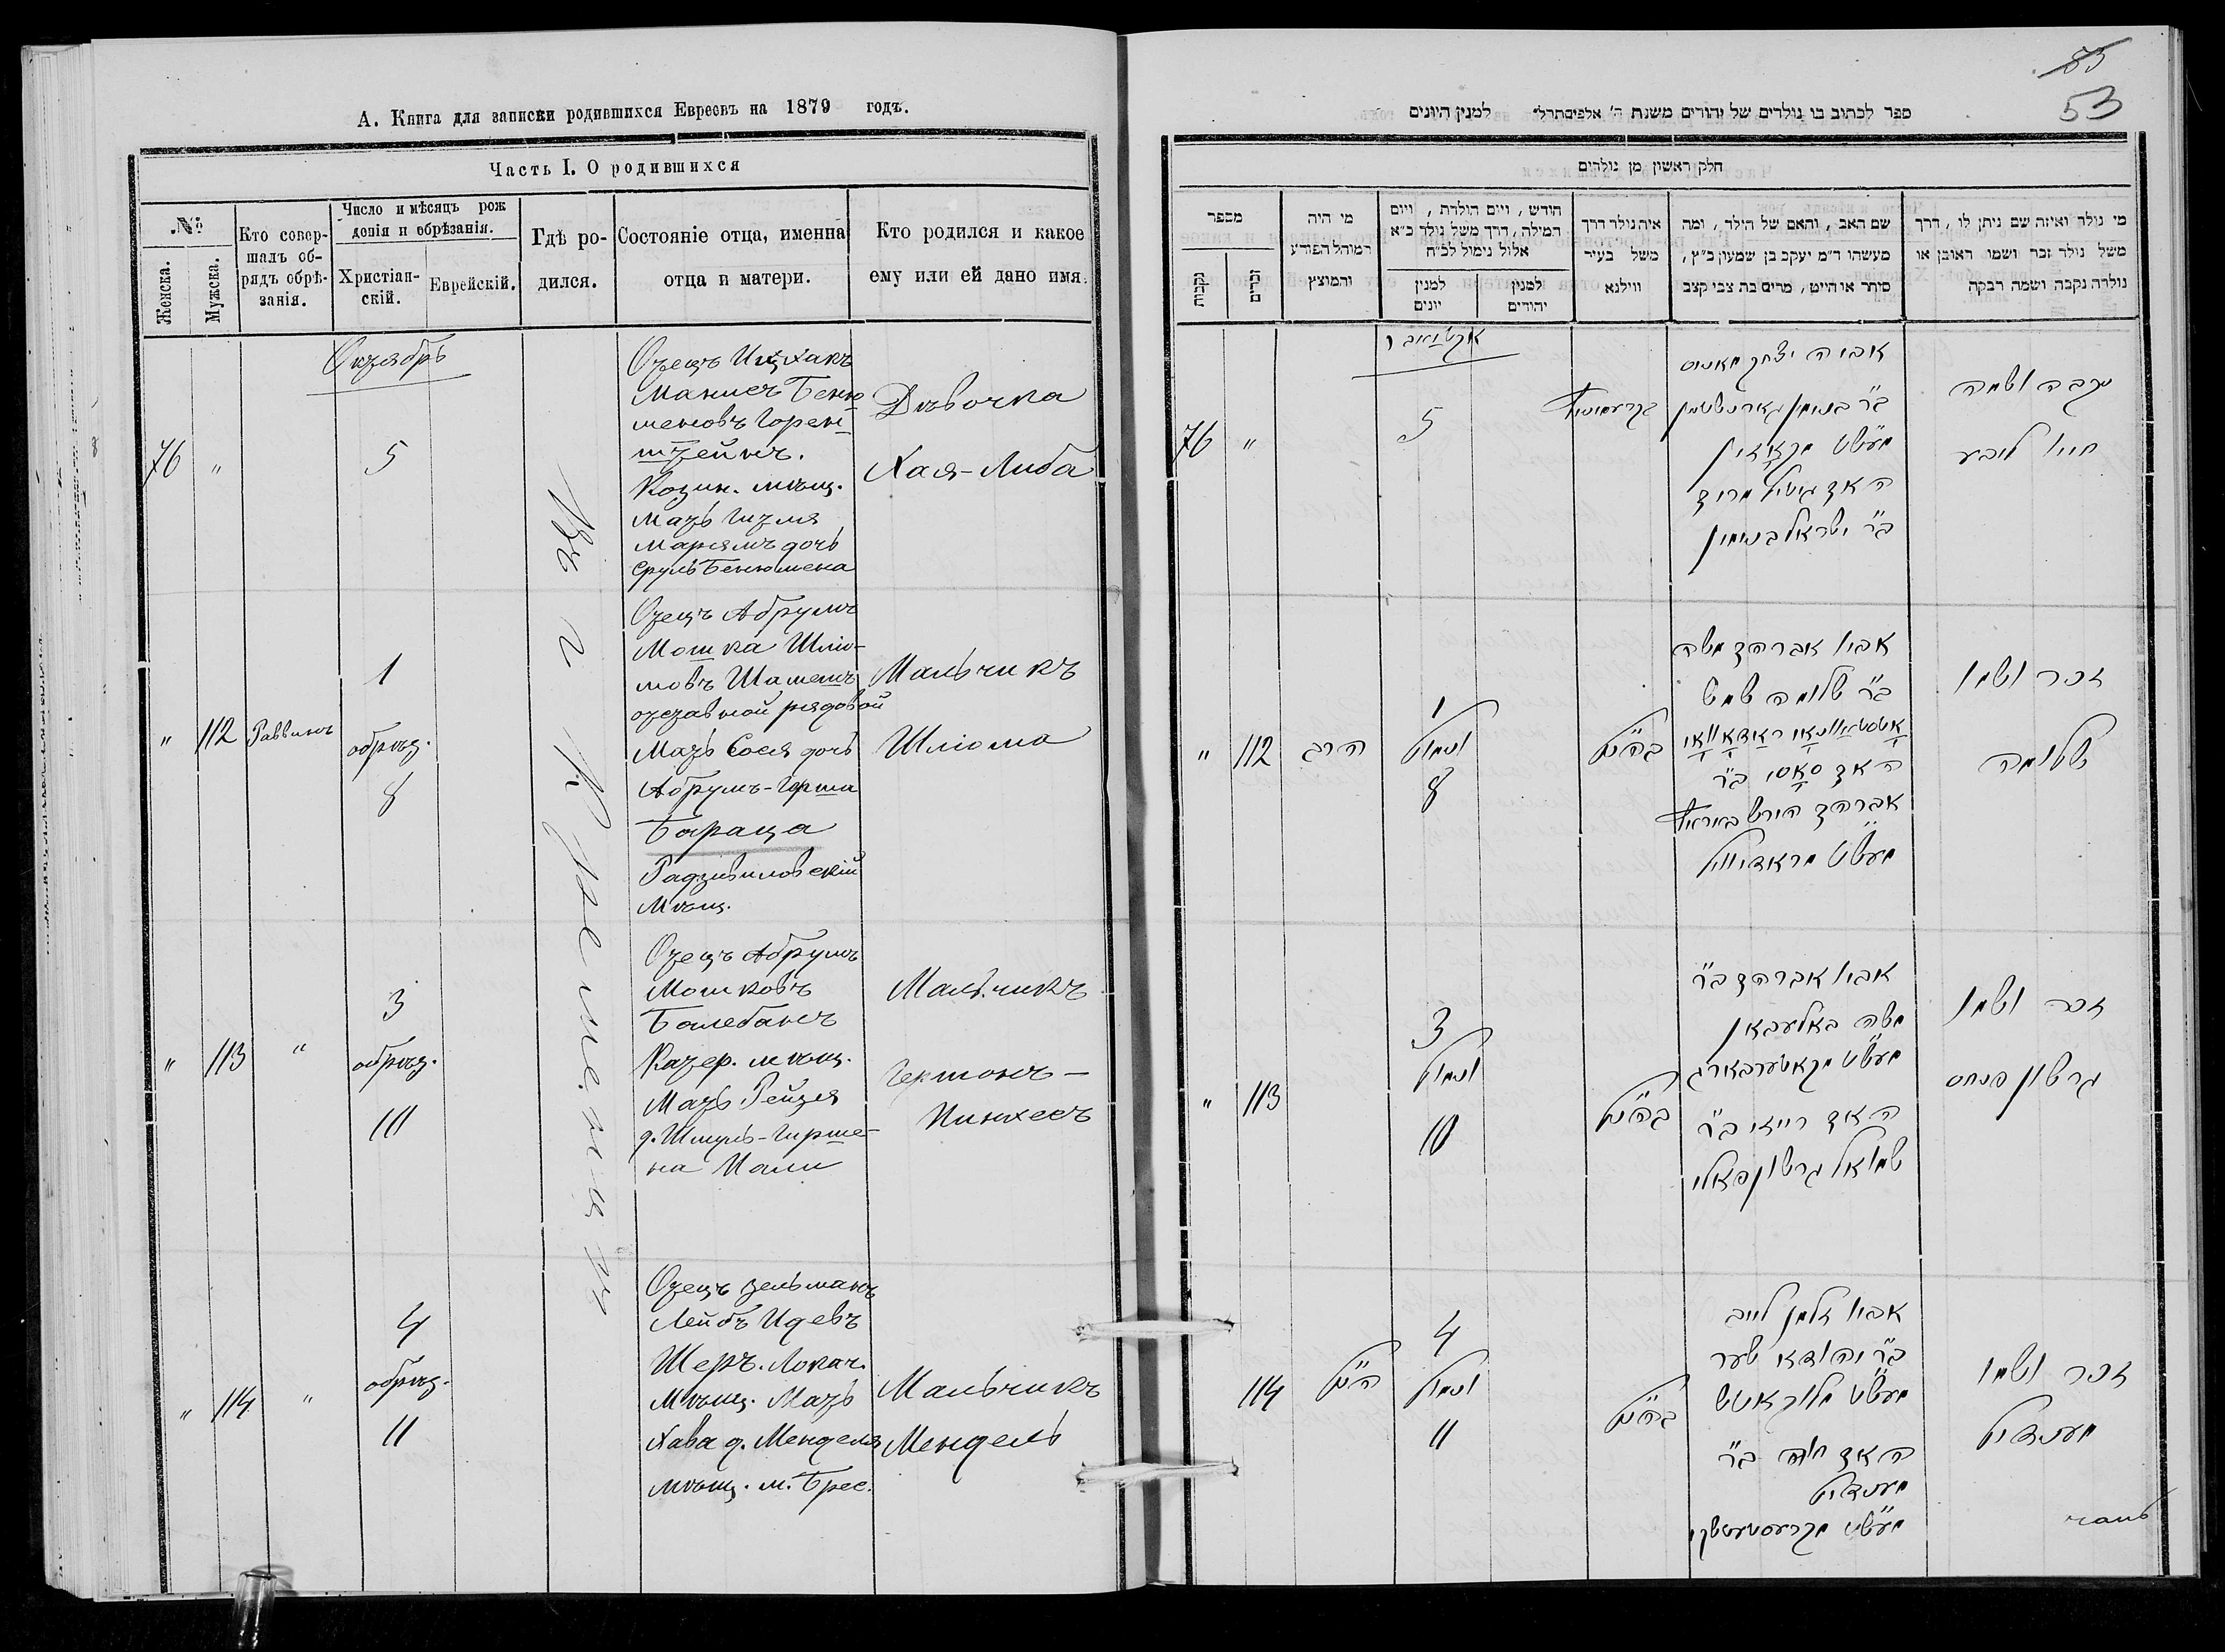 А. Книга для записки родившихся Евреевъ на 1879 годъ.
Часть I. О родившихся
№
Женска.
Мужска.
Кто совер-
шалъ об-
рядъ обрѣ-
занія.
Число и мѣсяцъ рож
денія и обрѣзанія.
Христіан-
скій.
Еврейскій.
Гдѣ ро-
дился.
Состояніе отца, именна
отца и матери.
Кто родился и какое
ему или ей дано имя.
Октябрь
76
"
5
Отецъ Ицхакъ
Манисъ Беню
меновъ Горен-
штейнъ.
Козин. мѣщ.
Мать Гитля
Марьямъ дочь
Сруль Бенюмена
Дѣвочка
Хая-Либа
Въ г. Кременцѣ
"
112
Раввинъ
1
обрѣз.
8
Отецъ Абрумъ
Мошка Шлио-
мовъ Шамешъ
отставной рядовой
Мать Сося дочь
Абрумъ-Герша
Бараца
Радзивиловскій
Мѣщ.
Мальчикъ
Шліома
"
113
"
3
обрѣз.
10
Отецъ Абрумъ
Мошковъ
Балебанъ
Катер. мѣщ.
Мать Рейзя
д. Шмуль-Гирше-
на Пали
Мальчикъ
Гершонъ-
Пинхесъ
"
114
"
4
обрѣз.
11
Отецъ Зельманъ
Лейбъ Идевъ
Шеръ. Локач.
Мѣщ. Мать
Хава д. Менделя
мѣщ. м. Брес.
Мальчикъ
Мендель
83
53
ספר לכתוב בו נולדים של יהודים משנת ה' אלפים תרל" למנין היונים
חלק ראשון מן נולדים
מספר
נקבות
זכרים
מי היה
המוהל הפורע
והמוצץ
חודש, ויום הולדת, ויום
המילה, דרך משל נולד כ"א
אלול נימול לכ"ח
למנין
יונים
למנין
יהודים
איה נולד דרך
משל בעיר
ווילנא
שם האב, והאם של הילד, ומה
מעשהו ד"מ יעקב בן שמעון כ"ץ,
סוחר או חייט, מרים בת צבי קצב
מי נולד ואיזה שם ניתן לו, דרך
משל נולד זכר ושמו ראובן או
נולדה נקבה ושמה רבקה
אקטיאבר
76
"
5
אביה יצחק מאניס
ב"ר בנימין גארנשטיין
מעשט מקאזין
האם גיטיל מרים
ב"ר ישראל בנימין
נקבה ושמה
חייא ליבע
"
112
הרב
1
ונימול
8
אביו אברהם משה
ב"ר שלומה שמש
האם סאסי ב"ר
מעשט מראדיוויל
זכר ושמו
שלומה
"
113
3
ונימול
10
אביו אברהם ב"ר
משה באלעבאן
האם רייזי ב"ר
שמואל גרשון פאלי
זכר ושמו
גרשון פנחס
114
4
ונימול
11
אביו זלמן לייב
ב"ר יהודא שער
מעשט מלוקאטש
האם חוה ב"ר
מענדיל
זכר ושמו
מענדיל